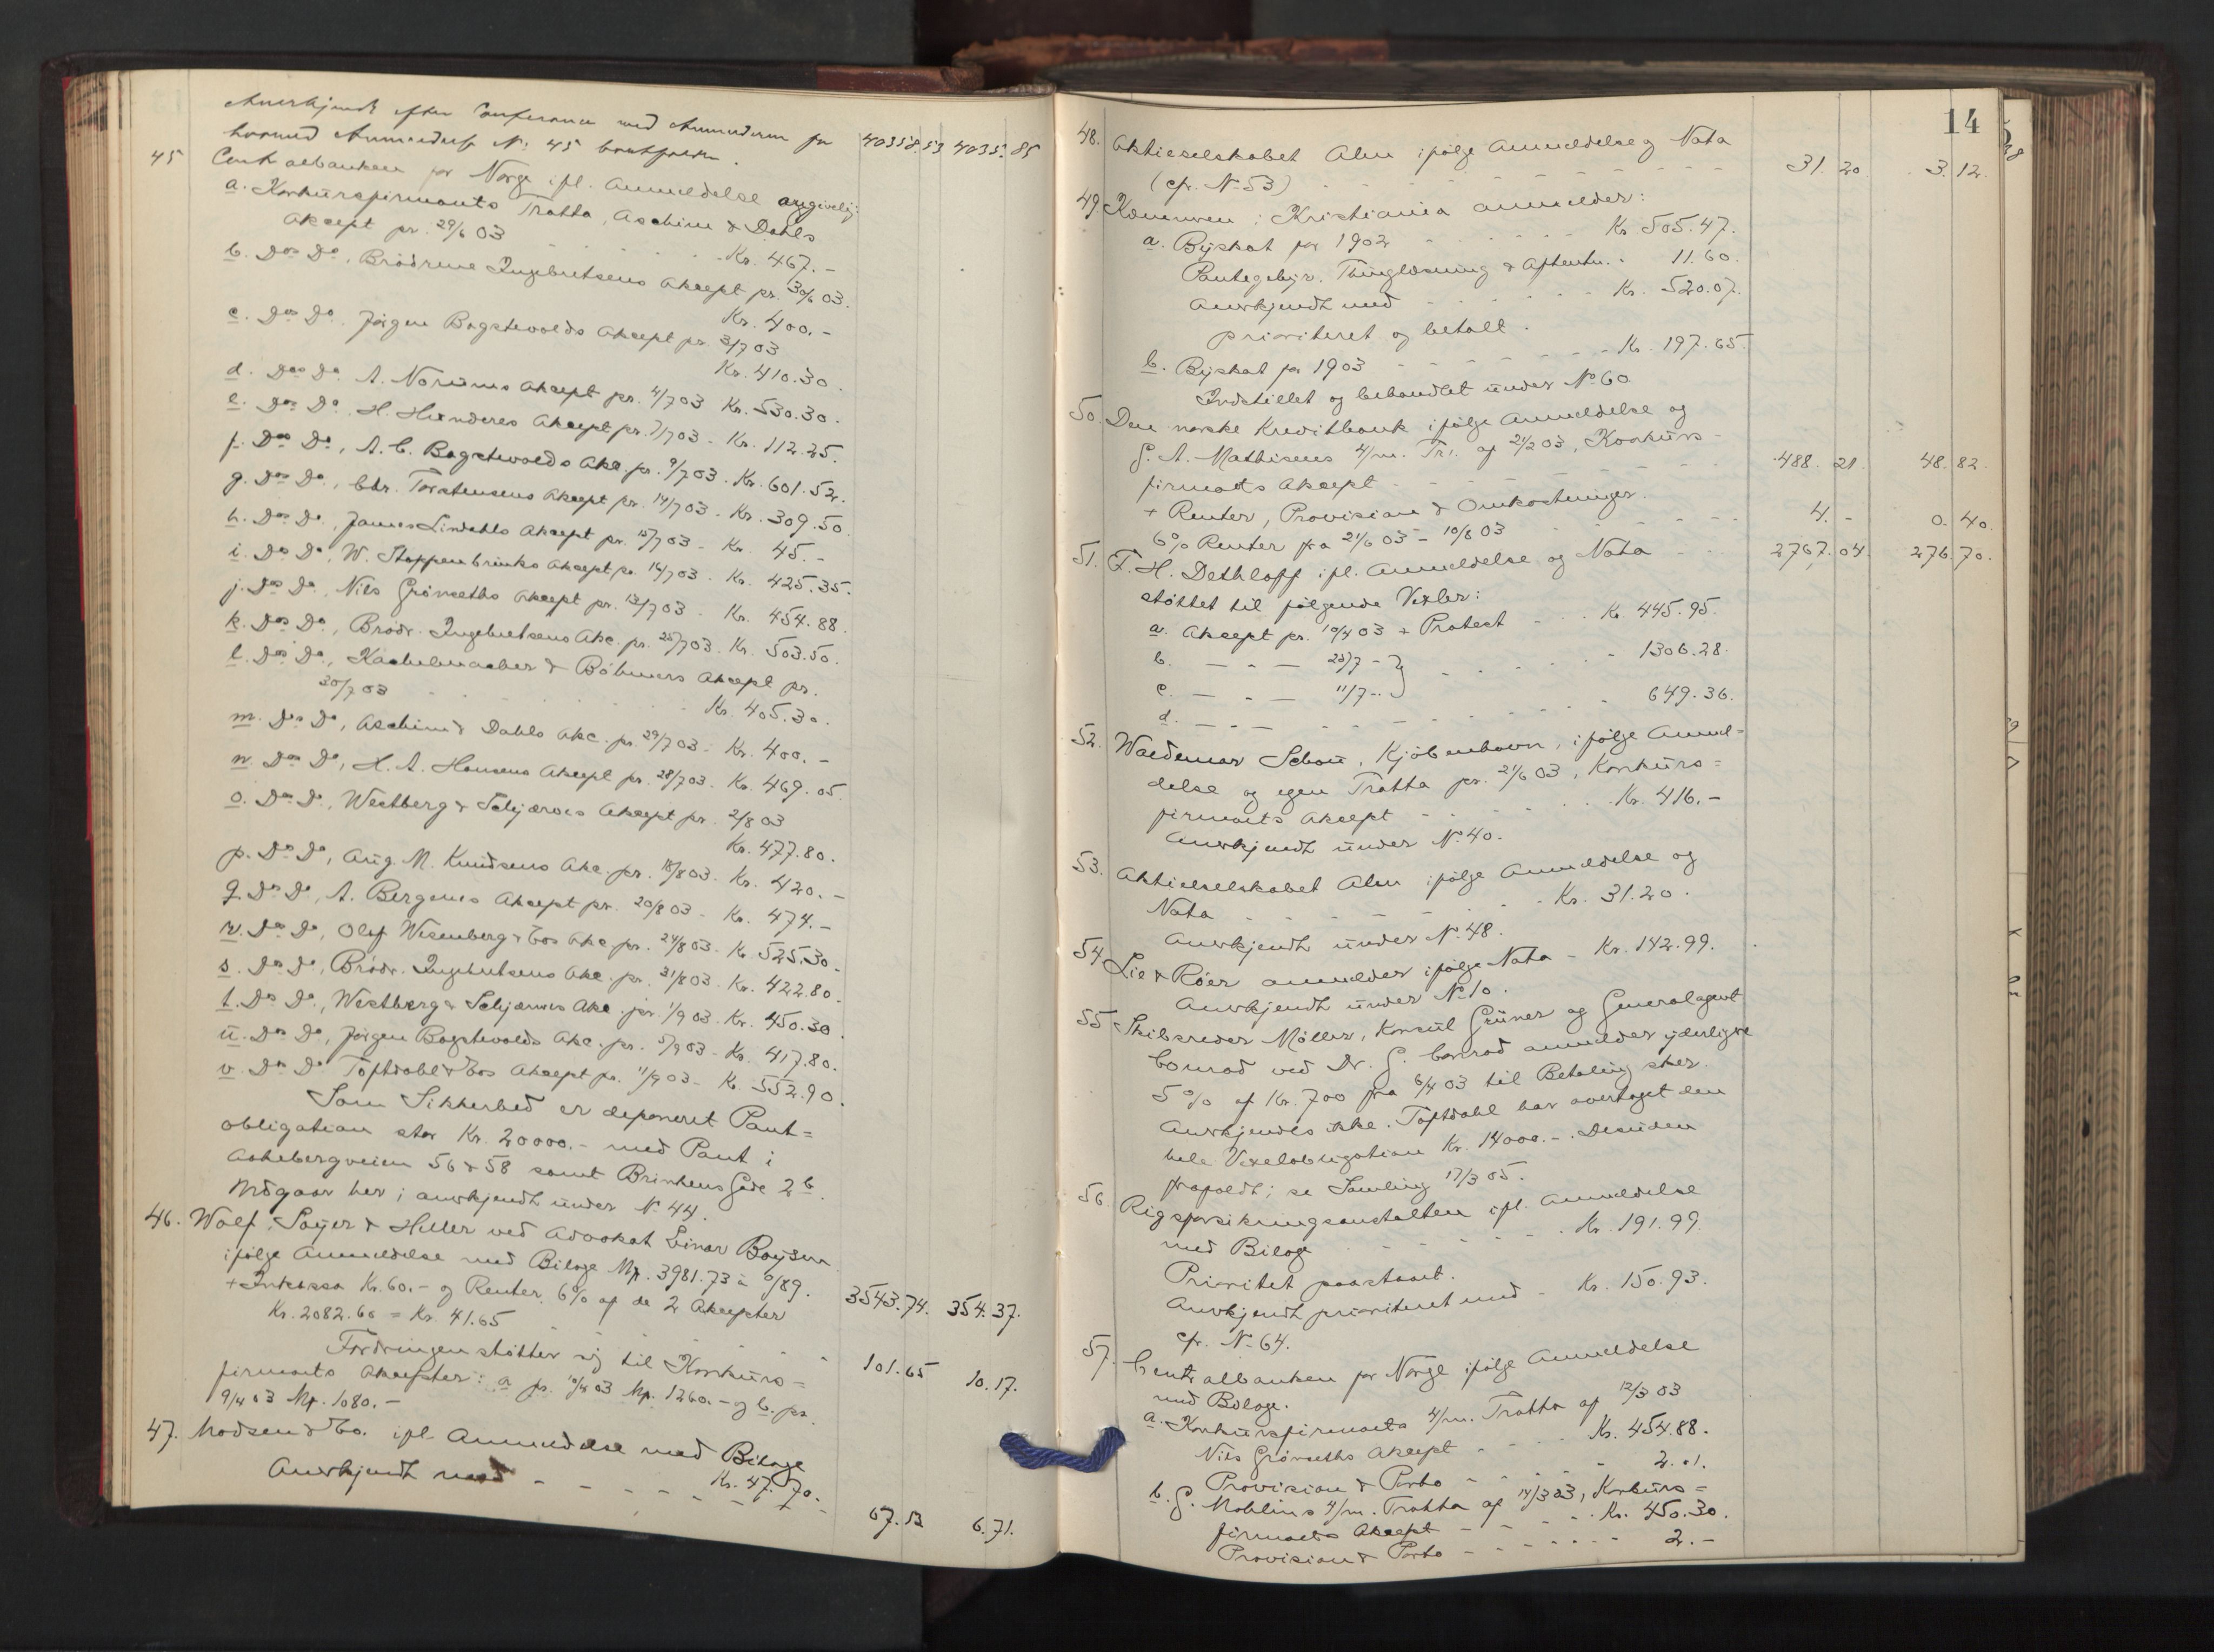 Anerkjendt efter Conferance med Anmelderen for 40358.53 4035.85
hvormed Anmeldelse No 45 bortfalder.
45 Centralbanken for Norge ifl. Anmeldelse angivelig:
a. Konkursfirmaets Tratta, Aschim & Dahls
Aksept pr. 29/6 03 Kr. 467.-
b. Dos Do, Brödrene Ingebretsens Aksept pr. 30/6 03.
Kr. 400.-
c. Dos Do. Jörgen Bogstevolds Aksept pr. 3/7 03
Kr. 410.30.
d. Dos Do A. Norums Aksept pr. 4/7 03 Kr. 530.30.
e. Dos Do, H. Hunderes Aksept pr. 7/7 03 - Kr. 112.25.
f. Dos Do, A. C. Bogstevolds Aks. pr. 9/7 03. Kr. 601.52.
g. Dos Do, Chr. Torstensens Aksept pr. 14/7 03 - Kr. 309.50
h. Dos Do, James Lindahls Aksept pr. 15/7 03 - Kr. 45.-
i. Dos Do, W. Stoppenbrinks Aksept pr. 14/7 03. Kr. 425.35.
j. Dos Do, Nils Grönseths Aksept pr. 13/7 03. Kr. 454.88.
k. Dos Do, Brödr. Ingebretsens Aks. pr. 25/7 03. Kr. 503.50.
l. Dos Do, Kachelmacher & Böhmers Aksept pr.
30/7 03 Kr. 405.30.
m. Dos Do, Aschim & Dahls Aks. pr. 29/7 03 - Kr. 400.-
n. Dos Do, H. A. Hansens Aksept pr. 28/7 03. Kr. 469.05.
o. Dos Do, Westberg & Schjærves Aksept pr. 2/8 03
Kr. 477.80.
p. Dos Do, Aug. M. Knudsens Aks. pr. 18/8 03. Kr. 420.-
q. Dos Do, A. Bergenes Aksept pr. 20/8 03 - Kr. 474.-
r. Dos Do, Olaf Wesenberg & Cos Aks pr. 24/8 03. Kr 525.30-
s. Dos Do, Brödr. Ingebretsens Aks. pr. 31/8 03. Kr. 422.80.
t. Dos Do, Westberg & Schjærves Aks. pr. 1/9 03. Kr. 450.30.
u. Dos Do, Jörgen Bogstevolds Aks. pr. 5/9 03 - Kr. 417.80.
v. Dos Do Toftdahl & Cos Aksept pr. 11/9 03 - Kr 552.90.
Som Sikkerhed er deponeret Pant=
obligation stor Kr. 20000.- med Pant i
Aakebergveien 56 & 58 samt Brinkens Gade 2b.
Udgaar her; anerkjendt under No 44.
46. Wolf, Sayer & Heller ved Advokat Einar Boyesen
ifølge Anmeldelse med Bilage Mk. 3981.73 à 0/89. 3543.74. 354.37.
+ Inkasso Kr. 60.- og Renter, 6% af de 2 Aksepter
Kr. 2082.60 = Kr. 41.65 101.65 10.17.
Fordringen støtter sig til Konkurs=
firmaets Aksepter: a pr. 10/4 03 Mk. 1260.- og b. pr.
9/4 03 Mk. 1080.-
47. Madsen & Co. ifl. Anmeldelse med Bilage
Kr. 47.70.
Anerkjendt med 67.12 6.71.
14
48. Aktieselskabet Alun ifølge Anmeldelse og Nota
(cfr. No 53) 31.20 3.12.
49. Kæmneren i Kristiania anmelder:
a. Byskat for 1902 Kr. 505.47.
Pantegebyr. Thinglæsning & Aftentn. 11.60.
Anerkjendt med Kr. 520.07.
prioriteret og betalt.
b. Byskat for 1903 Kr. 197.65.
Indstillet og behandlet under No 60
50. Den norske Kreditbank ifølge Anmeldelse og
G. A. Mathisens 4/m. Tr. af 21/2 03, Konkurs-
firmaets Aksept 488.21 48.82.
+ Renter, Provision & Omkostninger.
6% Renter fra 21/6 03 - 10/8 03 4.- 0.40.
51. F. H. Dethloff ifl. Anmeldelse og Nota 2767.04. 276.70.
støttet til følgende Vexler:
a. Aksept pr. 10/4 03 + Protest Kr. 445.95.
b. — - — 25/7 - } 1306.28.
c. — - — 11/7 - }
d. — - — 649.36.
52. Waldemar Schou, Kjöbenhavn, ifølge Anmel=
delse og egen Tratta pr. 21/6 03, Konkurs=
firmaets Aksept Kr. 416.-
Anerkjendt under No 40.
53. Aktieselskabet Alun ifølge Anmeldelse og
Nota Kr. 31.20.
Anerkjendt under No 48.
54 Lie & Röer anmelder ifølge Nota - Kr. 142.99.
Anerkjendt under No 10.
55 Skibsreder Möller, Konsul Grüner og Generalagent
Conrad ved Dr. G. Conrad anmelder yderligere
5% af Kr. 700 fra 6/4 03 til Betaling sker.
Anerkjendes ikke. Toftdahl har overtaget den
hele Vexelobligation Kr. 14000.-. Desuden
frafaldt; se Samling 17/3 05.
56. Rigsforsikringsanstalten ifl. Anmeldelse
med Bilag Kr. 191.99.
Prioritet paastaaet.
Anerkjendt prioriteret med Kr. 150.93.
cfr. No 64.
57. Centralbanken for Norge ifølge Anmeldelse
med Bilage.
a. Konkursfirmaets 4/m. Tratta af 13/3 03
Nils Grönseths Aksept Kr. 454.88.
Provision & Porto 2.01.
b. G. Mohlins 4/m. Tratta af 14/3 03, Konkurs=
firmaets Aksept Kr. 450.30.
Provision & Porto 2.-